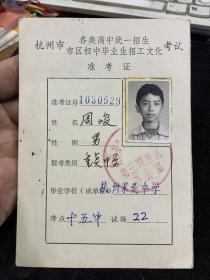 杭州市 各类高中统一招生 考试
市区初中毕业生招工文化
准考证
准考证号 1030529
姓名 周峻
性别 男
报考类别 重点中学
毕业学校(或单位) 杭州采荷中学
考点 十五中 试场 22